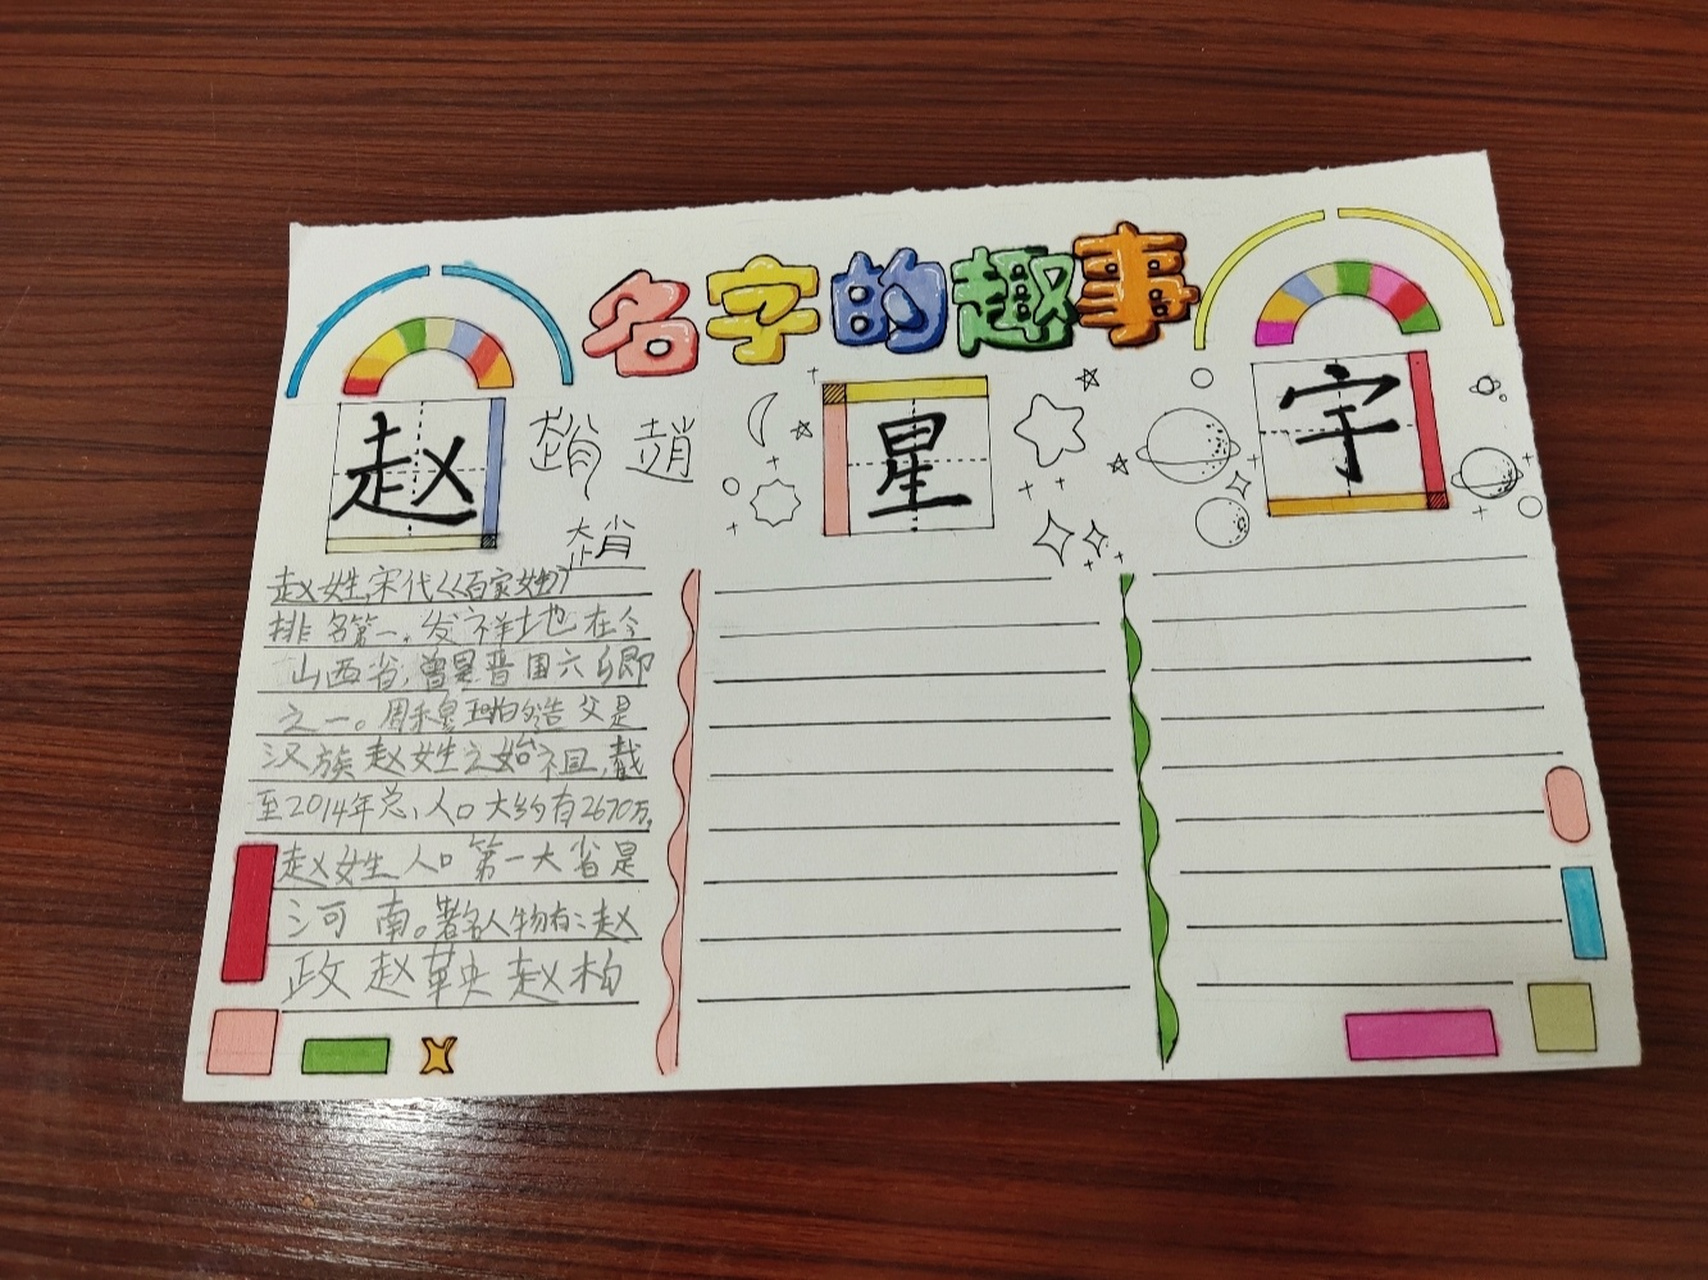 名字的趣事
赵
趙 趙
趙
星
宇
赵姓,宋代《百家姓》
排名第一。发祥地在今
山西省,曾是晋国六卿
之一。周穆王的 造父是
汉族赵姓之始祖,截
至2014年总,人口大约有2670万,
赵姓人口第一大省是
河南。著名人物有:赵
政 赵 赵柏